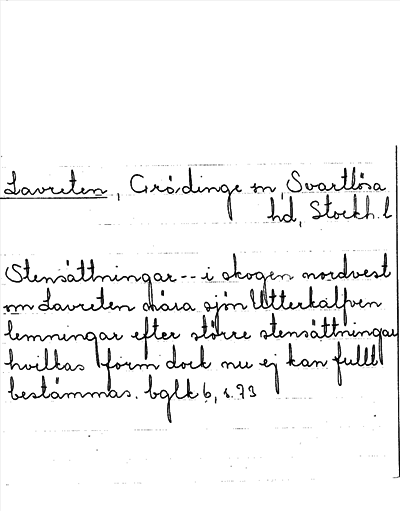 Lavreten, Grödinge sn, Svartlösa
hd, Stockh. l
Stensättningar -- i skogen nordvest
om Lavreten nära sjön Utterkalfven
lemningar efter större stensättningar
hvilkas form dock nu ej kan fullt
bestämmas. bglk 6, s. 73